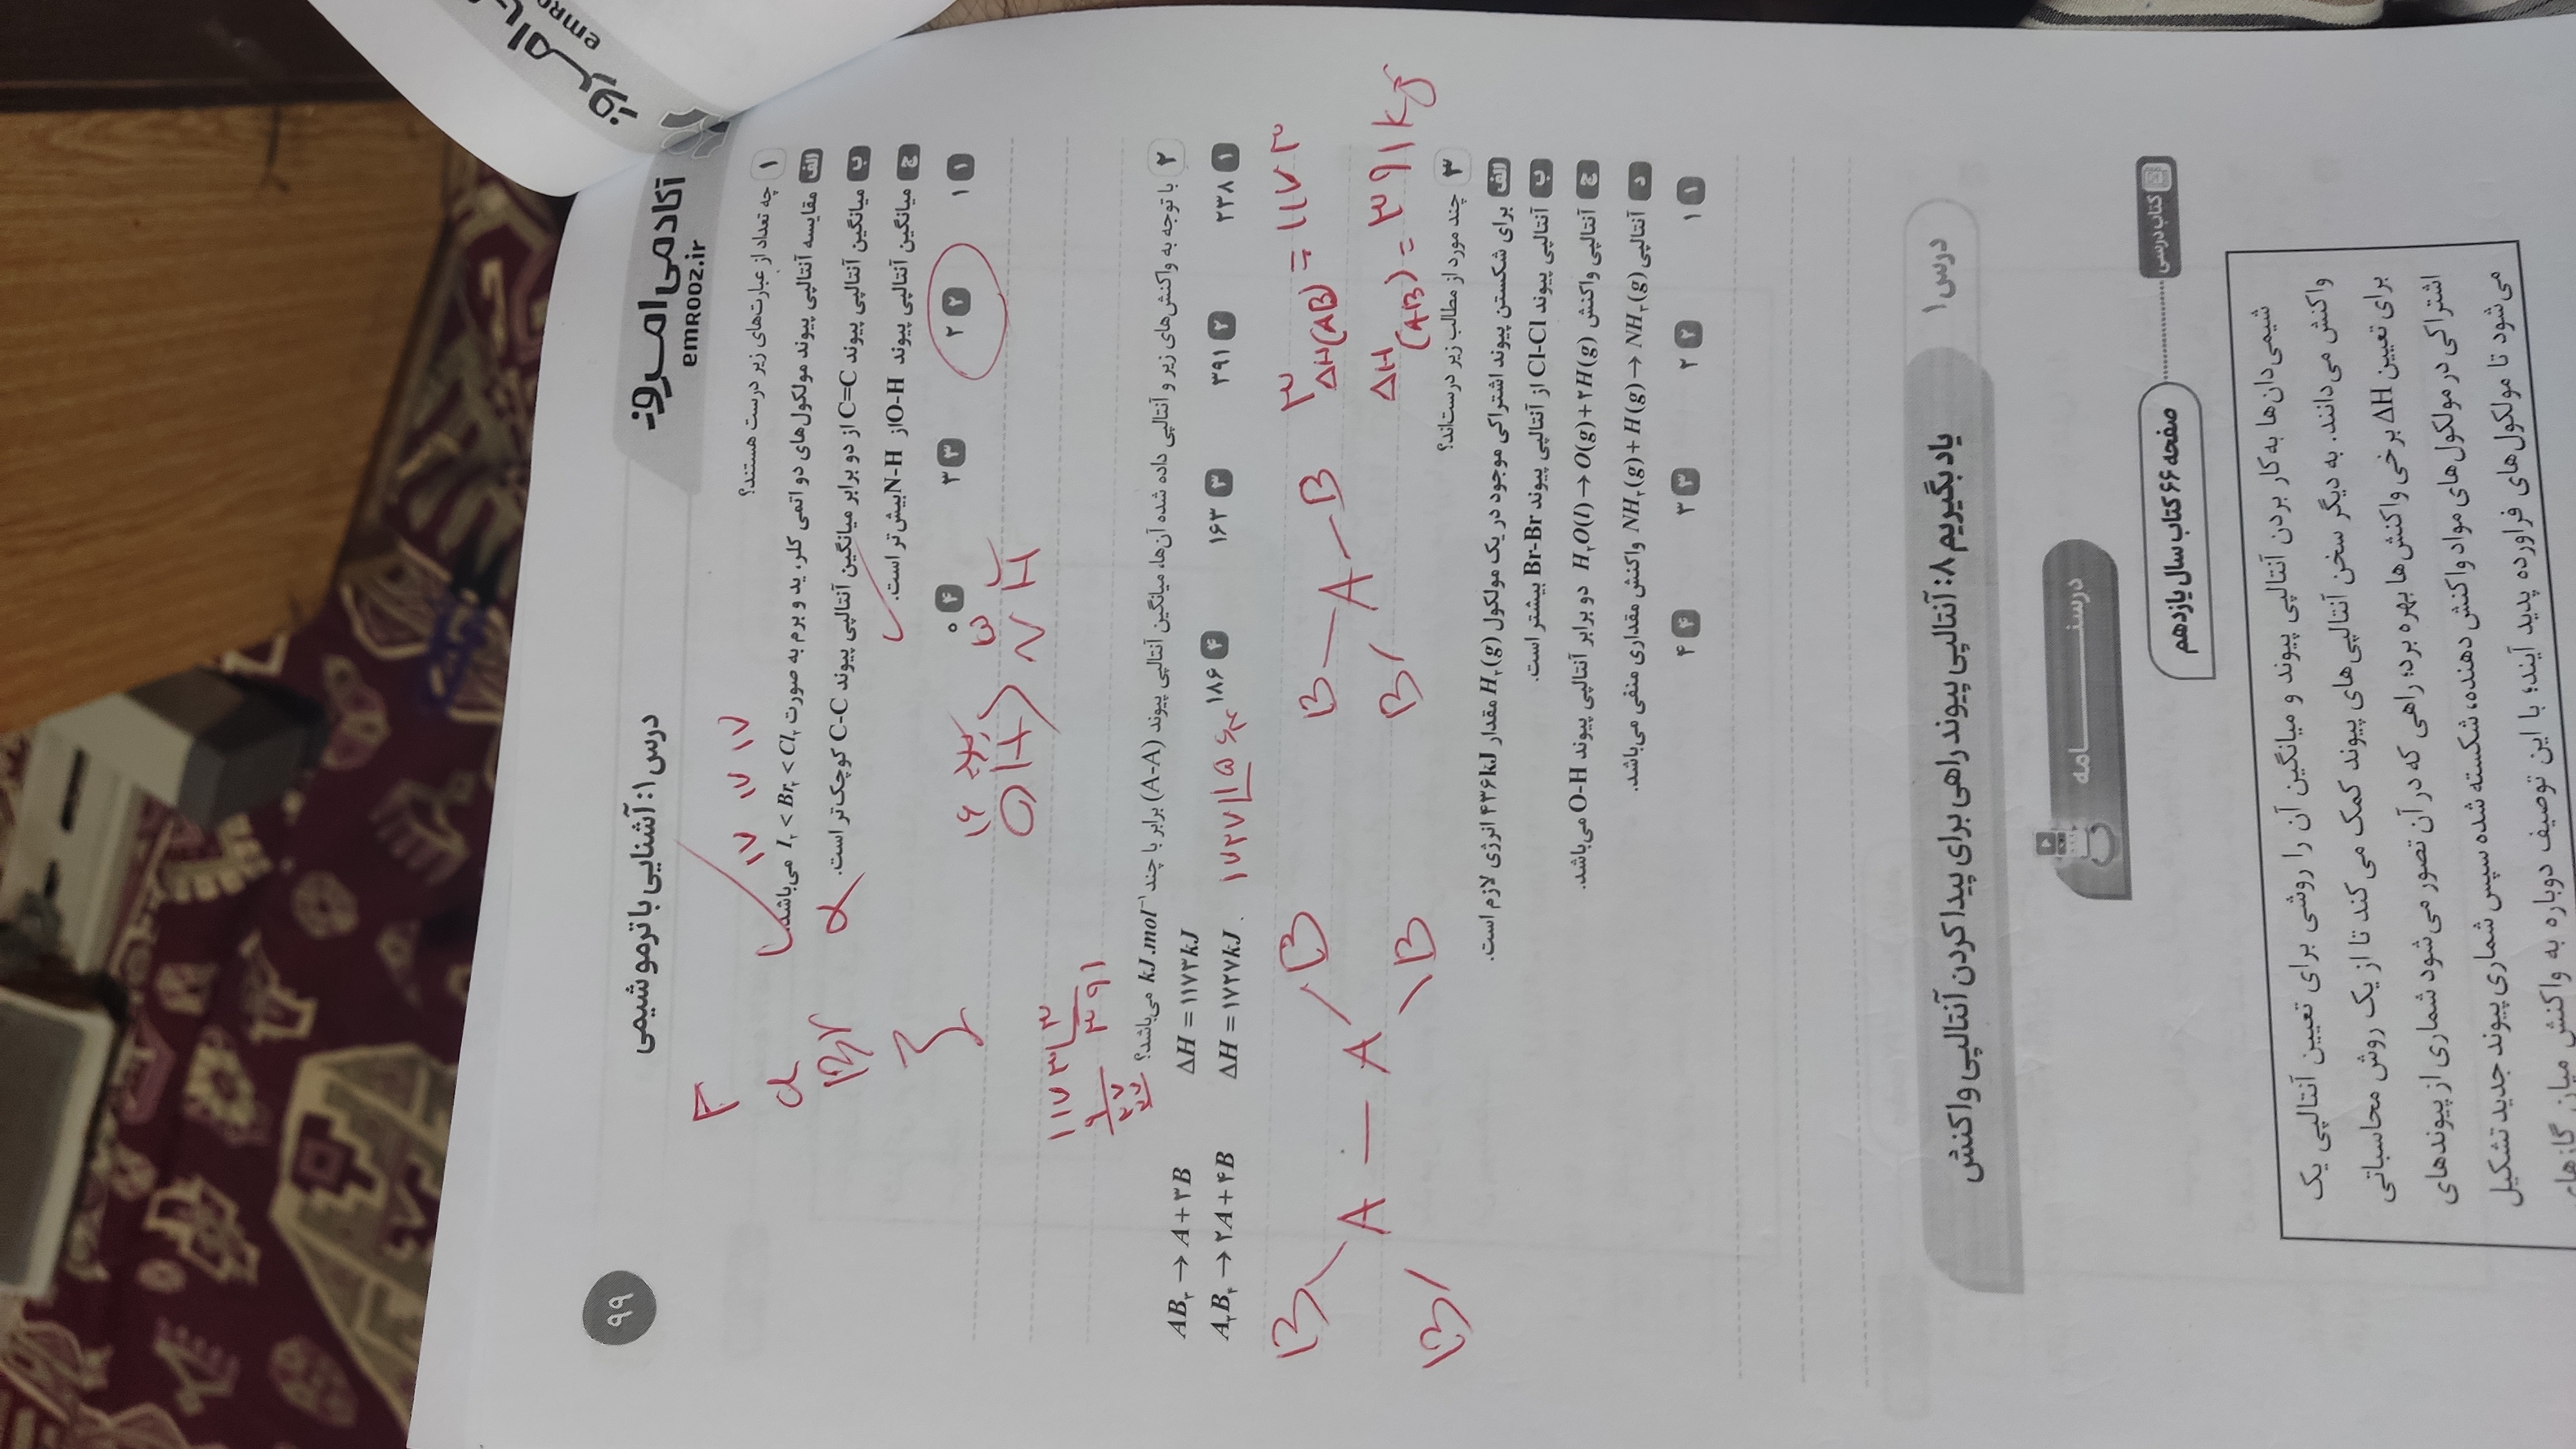 آکادمی امروز
emrooz.ir
درس ۱: آشنایی با ترموشیمی
۹۹
۱ چه تعداد از عبارت‌های زیر درست هستند؟
الف مقایسه آنتالپی پیوند مولکول‌های دو اتمی کلر، ید و برم به صورت I₂ < Br₂ < Cl₂ می‌باشد.
ب میانگین آنتالپی پیوند C=C از دو برابر میانگین آنتالپی پیوند C-C کوچک‌تر است.
ج میانگین آنتالپی پیوند O-H از N-H بیش‌تر است.
۱ ۱ ۲ ۲ ۳ ۳ ۴ ۰
F
Cl
Br
I
۱۷ ۱۷ ۱۷
O-H > N-H
۱۱۷۳ ۳
۳۹۱
۲ با توجه به واکنش‌های زیر و آنتالپی داده شده آن‌ها، میانگین آنتالپی پیوند (A-A) برابر با چند kJ.mol⁻¹ می‌باشد؟
AB₃ → A + ۳B ΔH = ۱۱۷۳kJ
A₂B₄ → ۲A + ۴B ΔH = ۱۷۲۷kJ
۱ ۲۳۸ ۲ ۳۹۱ ۳ ۱۶۳ ۴ ۱۸۶
۱۷۲۷ ۵
۳ ΔH(AB) = ۱۱۷۳
ΔH (A-B) = ۳۹۱ kJ
B B A A B B
B A B B
۳ چند مورد از مطالب زیر درست‌اند؟
الف برای شکستن پیوند اشتراکی موجود در یک مولکول H₂(g) مقدار ۴۳۶kJ انرژی لازم است.
ب آنتالپی پیوند Cl-Cl از آنتالپی پیوند Br-Br بیشتر است.
ج آنتالپی واکنش H₂O(l) → O(g) + ۲H(g) دو برابر آنتالپی پیوند O-H می‌باشد.
د آنتالپی NH₂(g) + H(g) → NH₃(g) واکنش مقداری منفی می‌باشد.
۱ ۱ ۲ ۲ ۳ ۳ ۴ ۴
درس ۱ یاد بگیریم ۸: آنتالپی پیوند راهی برای پیدا کردن آنتالپی واکنش
درسنامه
کتاب درسی صفحه ۶۶ کتاب سال یازدهم
شیمی‌دان‌ها به‌کار بردن آنتالپی پیوند و میانگین آن را روشی برای تعیین آنتالپی یک
واکنش می‌دانند. به دیگر سخن آنتالپی‌های پیوند کمک می کند تا از یک روش محاسباتی
برای تعیین ΔH برخی واکنش‌ها بهره برد؛ راهی که در آن تصور می‌شود شماری از پیوندهای
اشتراکی در مولکول‌های مواد واکنش دهنده، شکسته شده سپس شماری پیوند جدید تشکیل
می‌شود تا مولکول‌های فراورده پدید آیند؛ با این توصیف دوباره به واکنش میان گازهای